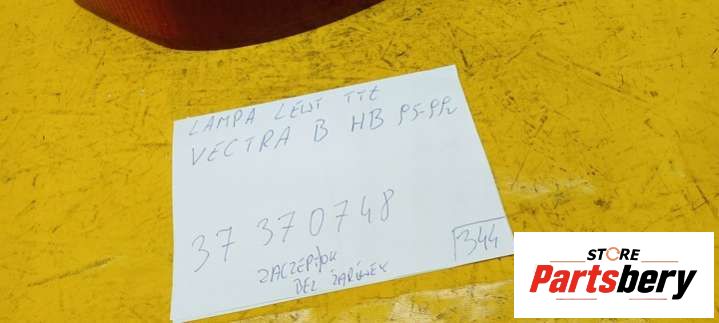 LAMPA LEWY TYŁ
VECTRA B HB 95-99r
37 370748
ZACZEP/OK
BEZ ŻARÓWEK
344
STORE
Partsbery